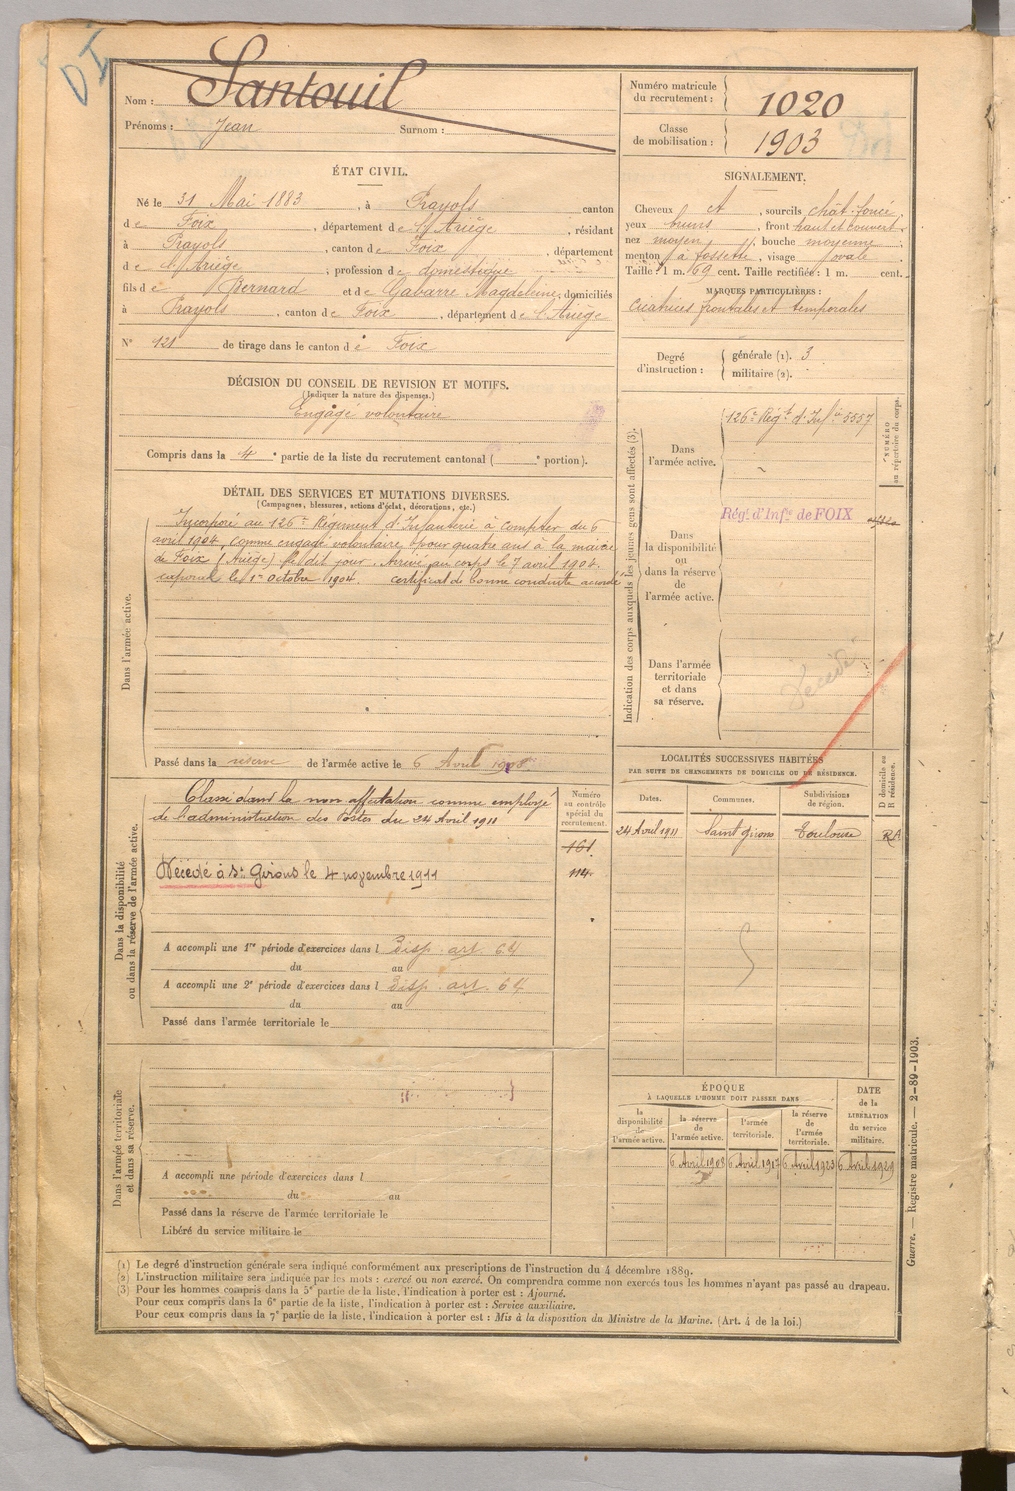 DI
Nom : Santouil
Prénoms : Jean Surnom :
Numéro matricule du recrutement : 1020
Classe de mobilisation : 1903
ÉTAT CIVIL.
Né le 31 Mai 1883, à Prayols canton
de Foix, département de l'Ariège, résidant
à Prayols, canton de Foix, département
de l'Ariège ; profession de domestique
fils de Bernard et de Gabarre Magdeleine, domiciliés
à Prayols, canton de Foix, département de l'Ariège
N° 121 de tirage dans le canton de Foix
SIGNALEMENT.
Cheveux et, sourcils chât. foncé
yeux bruns, front haut et couvert
nez moyen, bouche moyenne
menton à fossette, visage ovale
Taille : 1 m. 69 cent. Taille rectifiée : 1 m. cent.
MARQUES PARTICULIÈRES :
Cicatrices frontales et temporales
Degré d'instruction : générale (1). 3
militaire (2).
DÉCISION DU CONSEIL DE REVISION ET MOTIFS.
(Indiquer la nature des dispenses.)
Engagé volontaire
Compris dans la 4e partie de la liste du recrutement cantonal ( e portion).
DÉTAIL DES SERVICES ET MUTATIONS DIVERSES.
(Campagnes, blessures, actions d'éclat, décorations, etc.)
Dans l'armée active.
Incorporé au 126e Régiment d'Infanterie à compter du 6
avril 1904, comme engagé volontaire pour quatre ans à la mairie
de Foix (Ariège) le dit jour. Arrivé au corps le 7 avril 1904.
caporal le 1er Octobre 1904. certificat de bonne conduite accordé
Passé dans la réserve de l'armée active le 6 Avril 1908.
Indication des corps auxquels les jeunes gens sont affectés (3).
NUMÉRO au répertoire du corps.
Dans l'armée active. 126e Régt d'Infie 5557
Dans la disponibilité ou dans la réserve de l'armée active.
Régt d'Infie de FOIX
Dans l'armée territoriale et dans sa réserve.
Décédé
Dans la disponibilité ou dans la réserve de l'armée active.
Classé dans la non affectation comme employé
de l'administration des Postes du 24 Avril 1911
Décédé à St Girons le 4 novembre 1911
A accompli une 1re période d'exercices dans l Disp. art. 64
du au
A accompli une 2e période d'exercices dans l Disp. art. 64
du au
Passé dans l'armée territoriale le
Numéro au contrôle spécial du recrutement.
161
LOCALITÉS SUCCESSIVES HABITÉES
PAR SUITE DE CHANGEMENTS DE DOMICILE OU DE RÉSIDENCE.
Dates. Communes. Subdivisions de région. D domicile ou R résidence.
24 Avril 1911 Saint Girons Toulouse R
Dans l'armée territoriale et dans sa réserve.
A accompli une période d'exercices dans l
du au
Passé dans la réserve de l'armée territoriale le
Libéré du service militaire le
ÉPOQUE
À LAQUELLE L'HOMME DOIT PASSER DANS
la disponibilité de l'armée active. la réserve de l'armée active. l'armée territoriale. la réserve de l'armée territoriale.
DATE de la LIBÉRATION du service militaire.
6 Avril 1908 6 Avril 1917 6 Avril 1923 6 Avril 1929
Guerre. — Registre matricule. — 2-89-1903.
(1) Le degré d'instruction générale sera indiqué conformément aux prescriptions de l'instruction du 4 décembre 1889.
(2) L'instruction militaire sera indiquée par les mots : exercé ou non exercé. On comprendra comme non exercés tous les hommes n'ayant pas passé au drapeau.
(3) Pour les hommes compris dans la 5e partie de la liste, l'indication à porter est : Ajourné.
Pour ceux compris dans la 6e partie de la liste, l'indication à porter est : Service auxiliaire.
Pour ceux compris dans la 7e partie de la liste, l'indication à porter est : Mis à la disposition du Ministre de la Marine. (Art. 4 de la loi.)